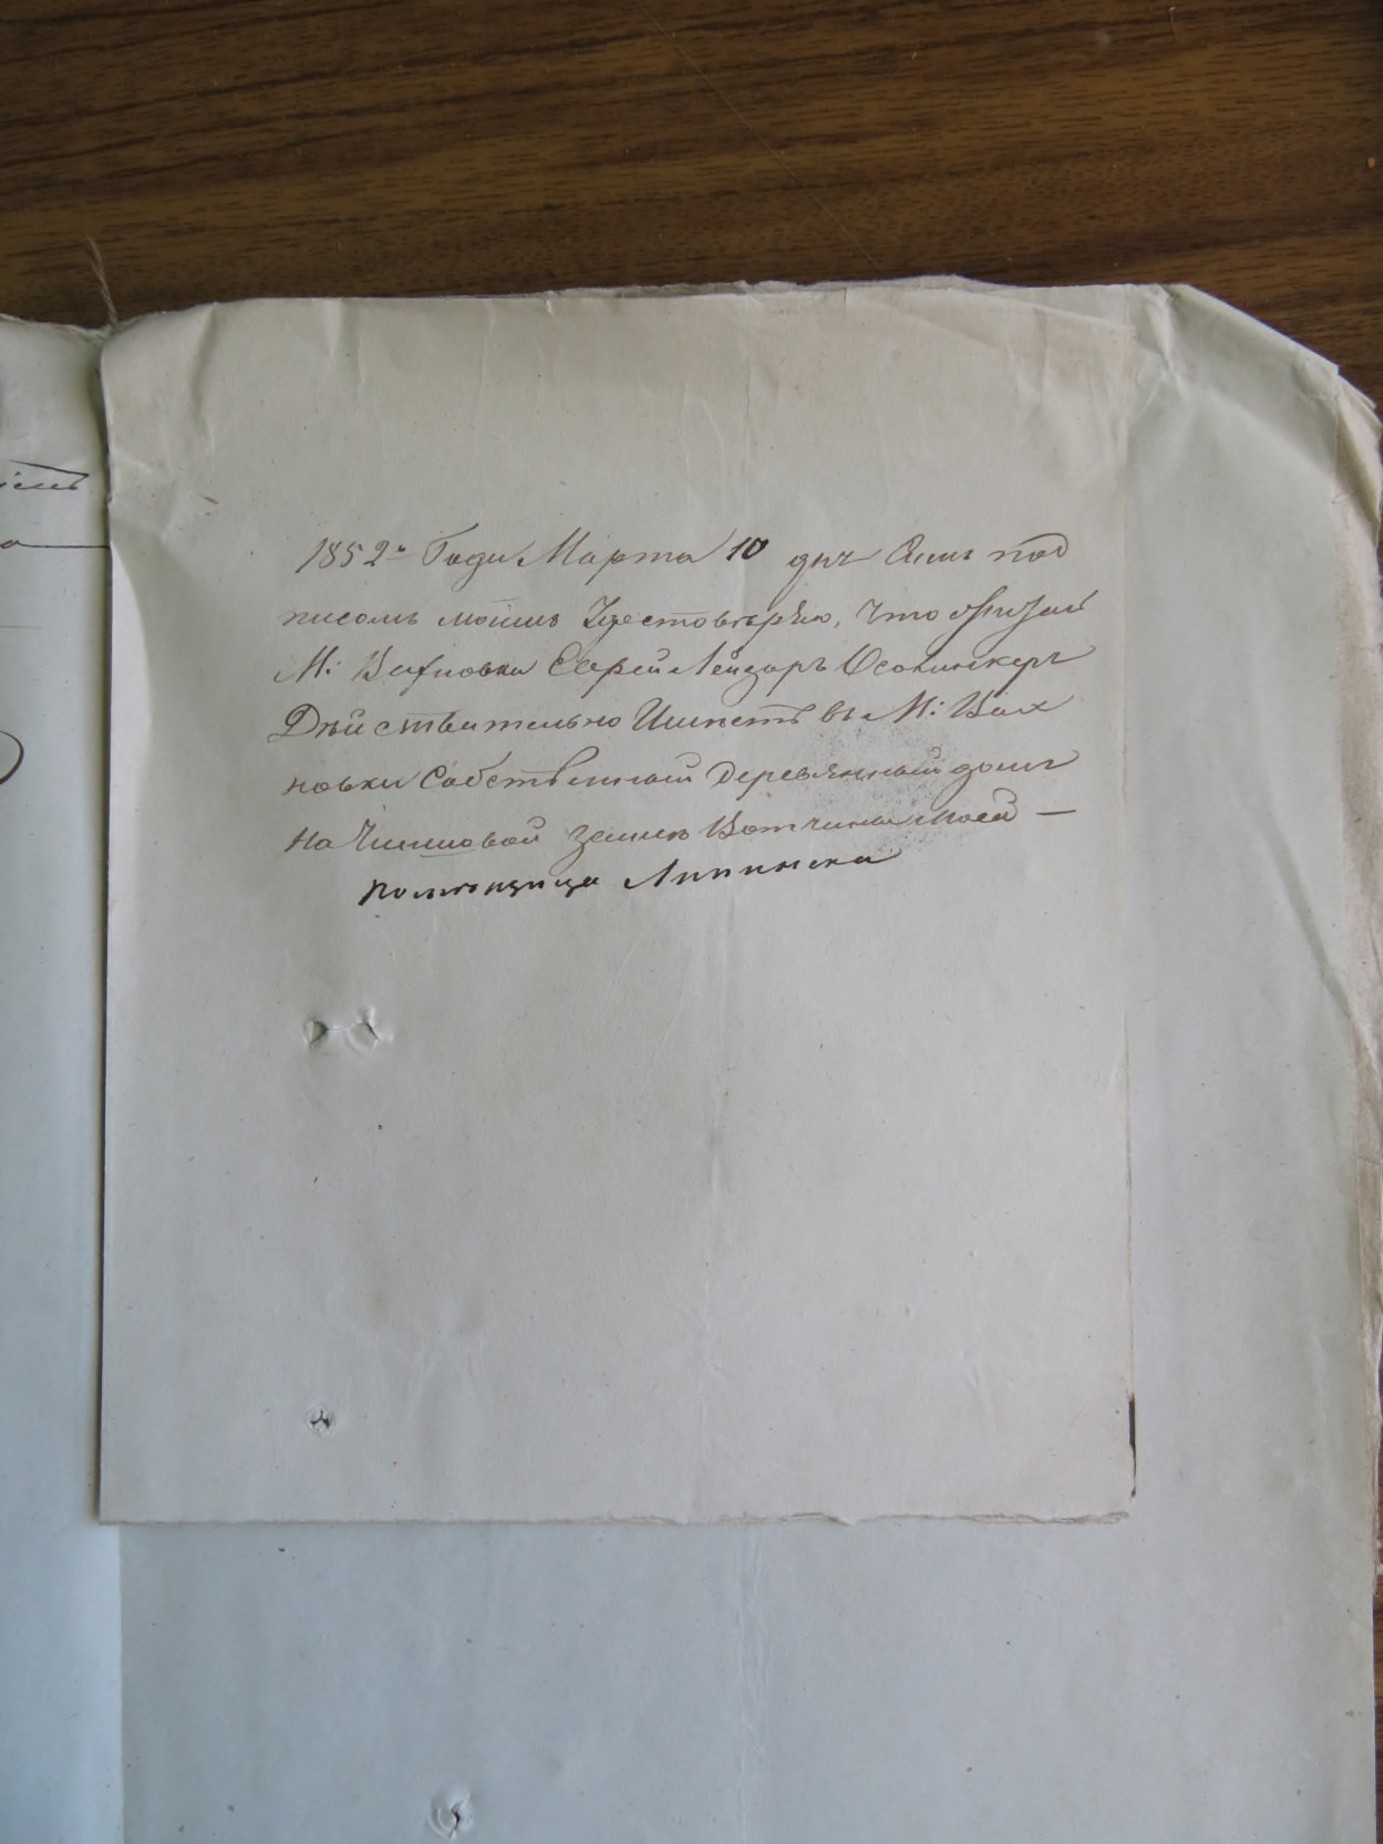 1852го Году Марта 10 дня Симъ под
писомъ моимъ Удестовѣрѣю, что
М: Вахновки Еврей Лейзоръ Осолинкеръ
Дѣйствительно Имѣетъ въ М: Вах
новки Собственный деревянный домъ
На Чиншовой землѣ Вотчины моей —
помѣщица Липинска